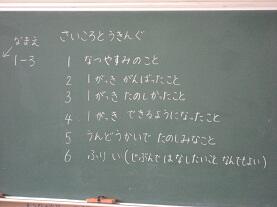 なまえ
さいころとうきんぐ
1-3
1 なつやすみのこと
2 1がっき がんばったこと
3 1がっき たのしかったこと
4 1がっき できるようになったこと
5 うんどうかいで たのしみなこと
6 ふりい(じぶんで はなしたいこと なんでもよい)